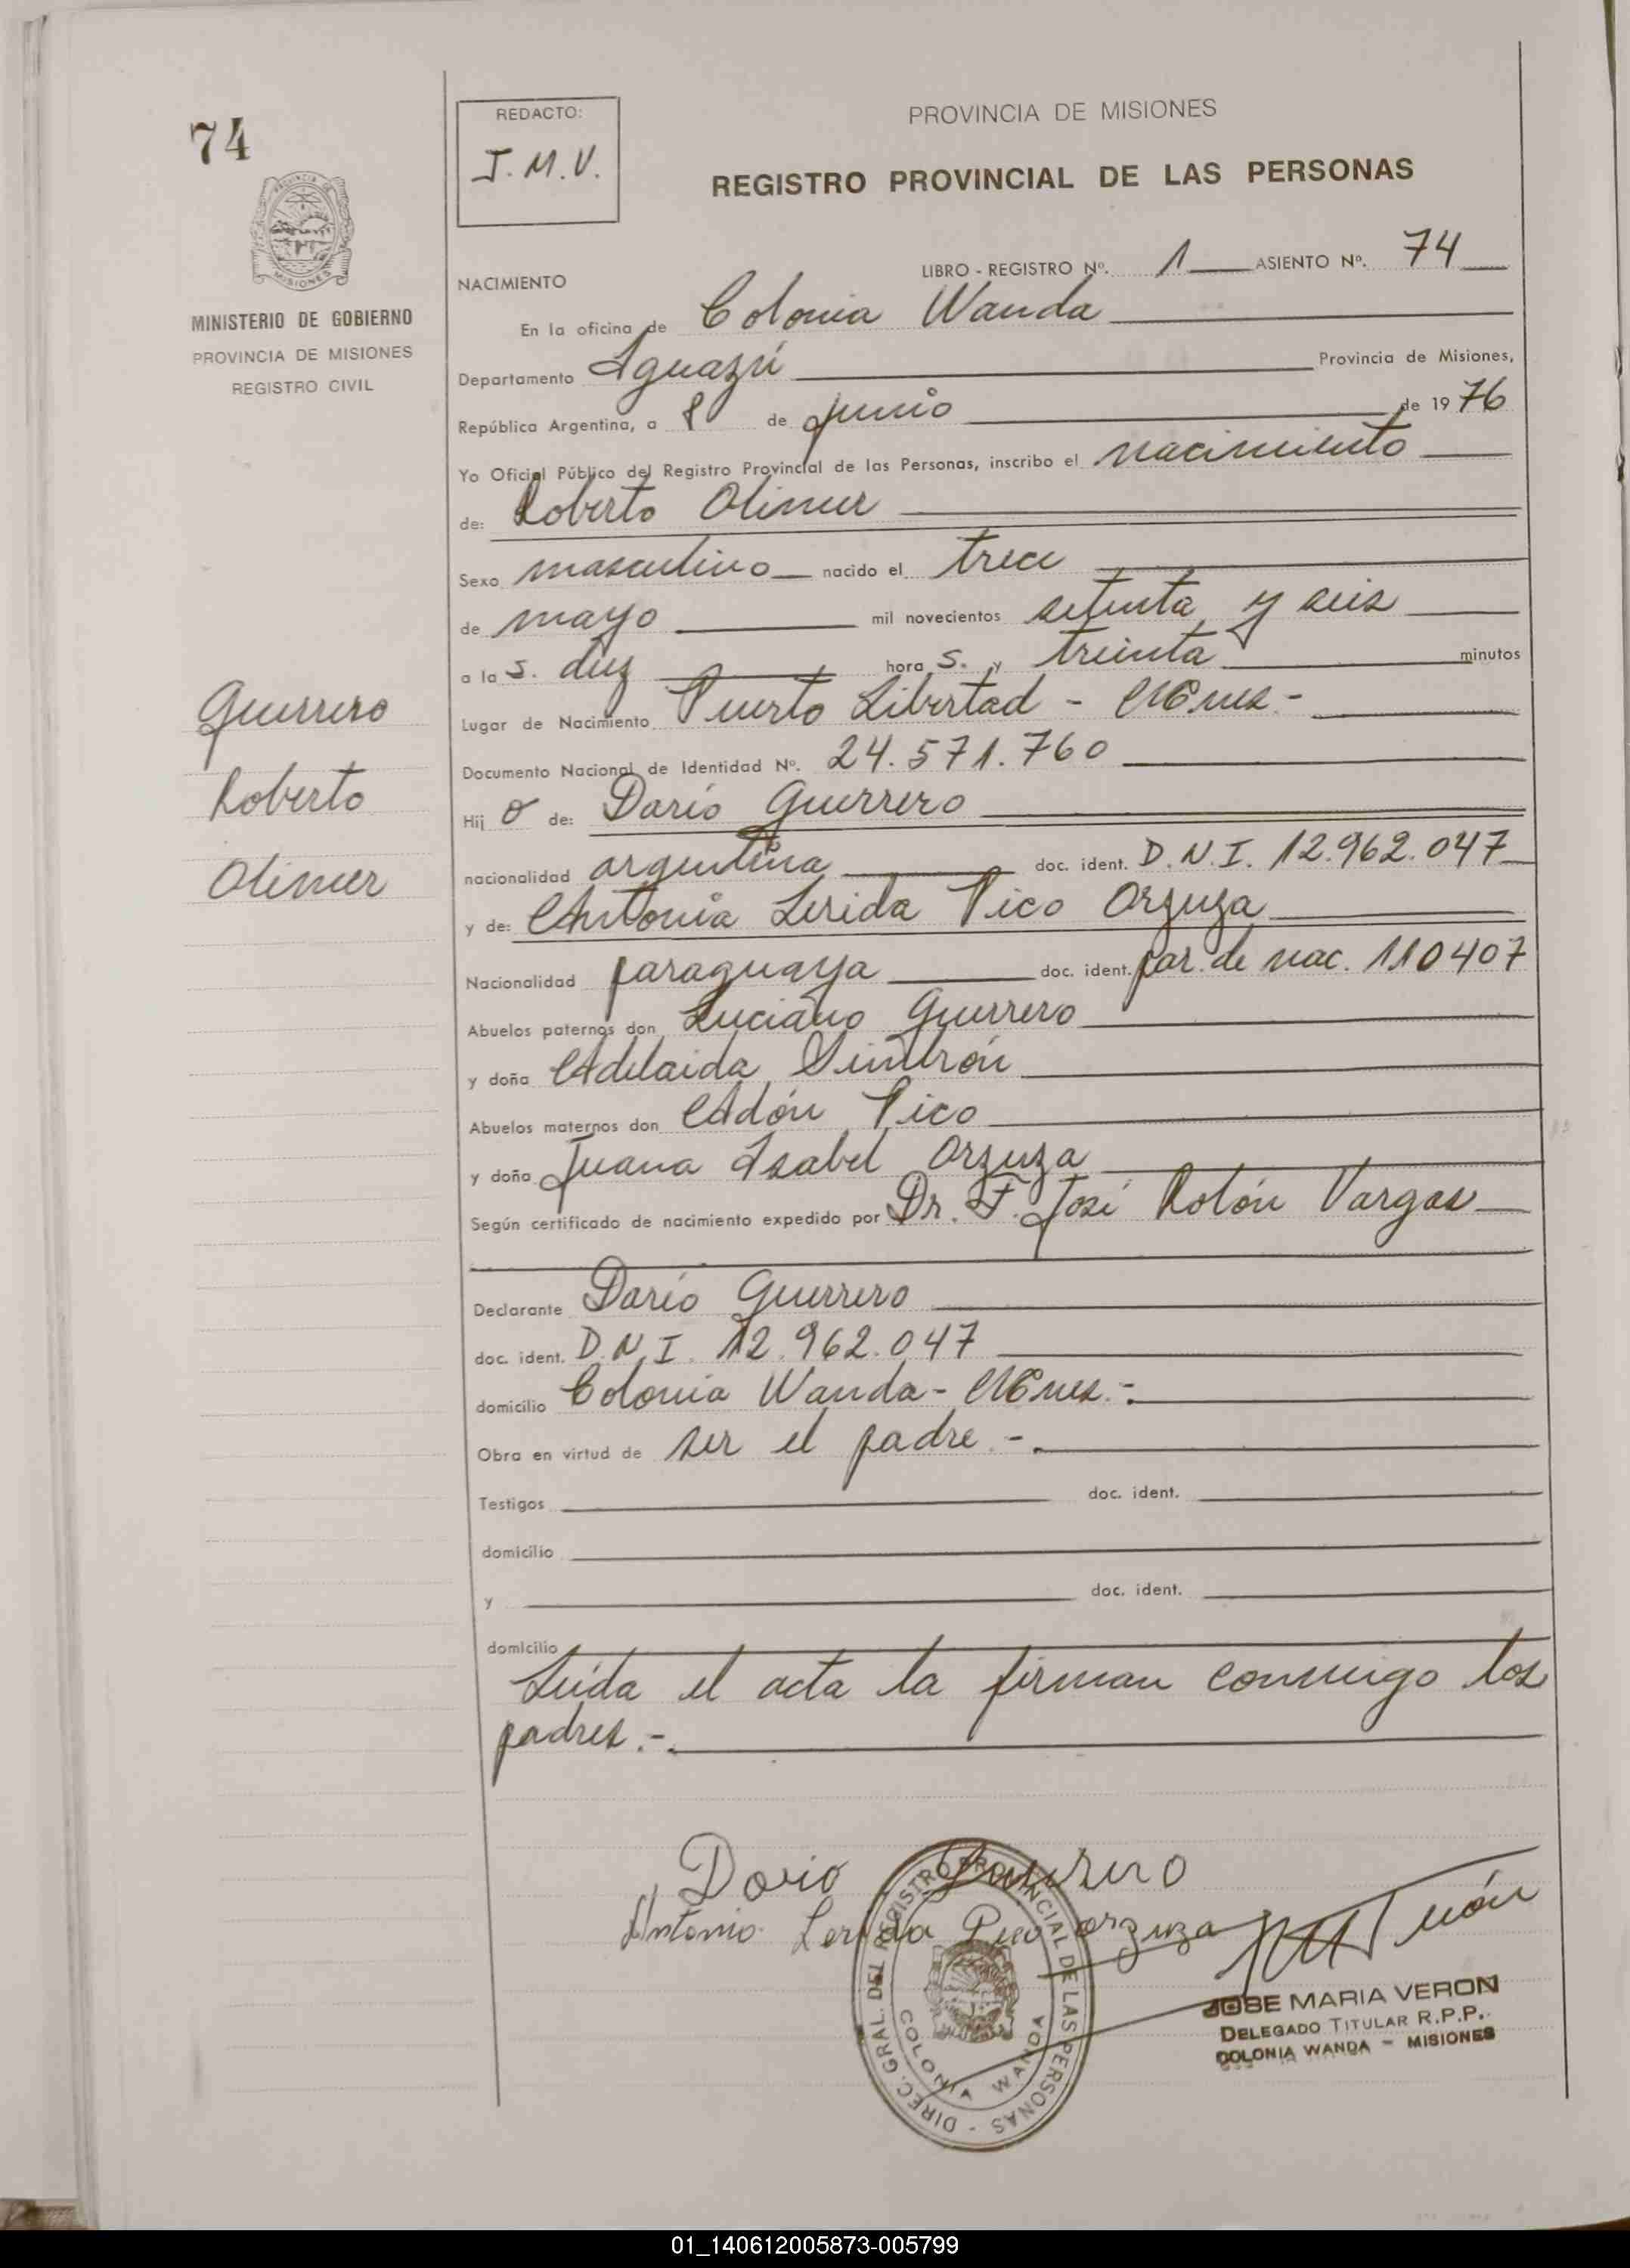 74
PROVINCIA DE MISIONES
MINISTERIO DE GOBIERNO
PROVINCIA DE MISIONES
REGISTRO CIVIL
Guerrero
Roberto
Olimer
REDACTO:
J.M.V.
PROVINCIA DE MISIONES
REGISTRO PROVINCIAL DE LAS PERSONAS
LIBRO - REGISTRO Nº. 1 ASIENTO Nº. 74
NACIMIENTO
En la oficina de Colonia Wanda
Departamento Iguazú Provincia de Misiones,
República Argentina, a 8 de junio de 1976
Yo Oficial Público del Registro Provincial de las Personas, inscribo el nacimiento
de: Roberto Olimer
Sexo masculino nacido el trece
de mayo mil novecientos setenta y seis
a las. diez horas. y treinta minutos
Lugar de Nacimiento Puerto Libertad - Mnes.-
Documento Nacional de Identidad Nº. 24.571.760
Hijo de: Darío Guerrero
nacionalidad argentina doc. ident. D.N.I. 12.962.047
y de: Antonia Lerida Pico Orzuza
Nacionalidad paraguaya doc. ident. par. de nac. 110407
Abuelos paternos don Luciano Guerrero
y doña Adelaida
Abuelos maternos don Adón Pico
y doña Juana Isabel Orzuza
Según certificado de nacimiento expedido por Dr. F. José Rolón Vargas
Declarante Darío Guerrero
doc. ident. D.N.I. 12.962.047
domicilio Colonia Wanda - Mnes.-
Obra en virtud de ser el padre.-
Testigos doc. ident.
domicilio
y doc. ident.
domicilio
Leída el acta la firman conmigo los
padres.-
Dario Guerrero
Antonia Lerida Pico orzuza
DIREC. GRAL. DEL REGISTRO PROVINCIAL DE LAS PERSONAS -
COLONIA WANDA
JOSE MARIA VERON
DELEGADO TITULAR R.P.P.
COLONIA WANDA - MISIONES
01_140612005873-005799